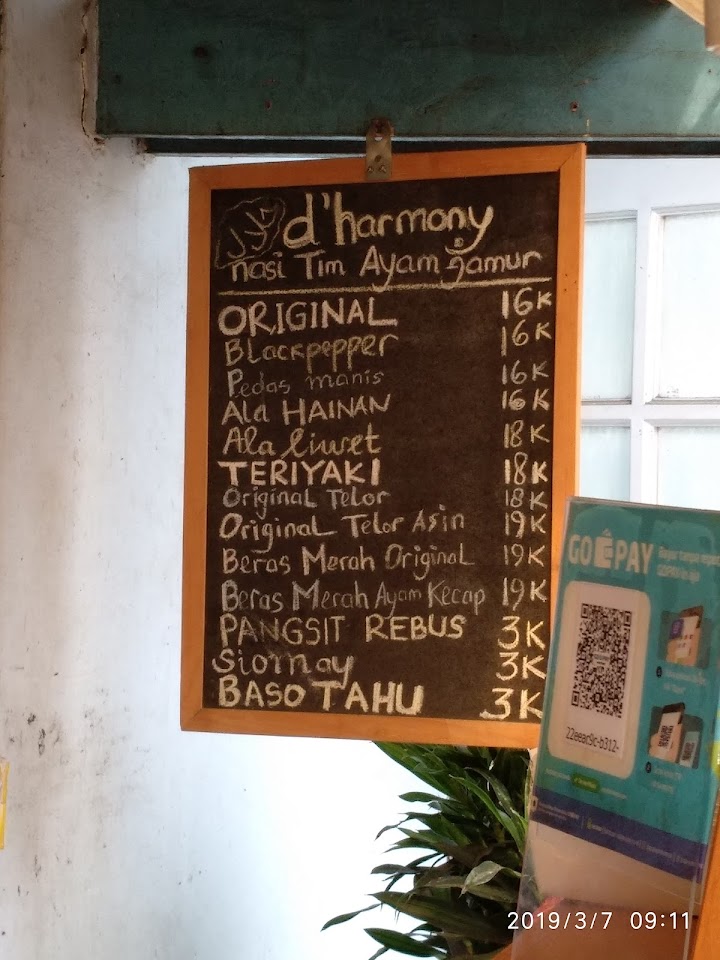 d'harmony
nasi Tim Ayam Jamur
ORIGINAL 16K
Blackpepper 16K
Pedas manis 16K
Ala HAINAN 16K
Ala liwet 18K
TERIYAKI 18K
Original Telor 18K
Original Telor Asin 19K
Beras Merah Original 19K
Beras Merah Ayam Kecap 19K
PANGSIT REBUS 3K
Siomay 3K
BASO TAHU 3K
GO PAY
Bayar tanpa
22eeac9c-b312-
2019/3/7 09:11